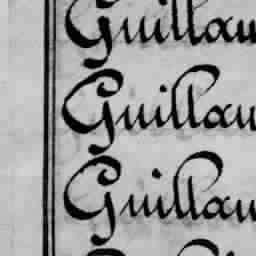 Guillau
Guillau
Guillau